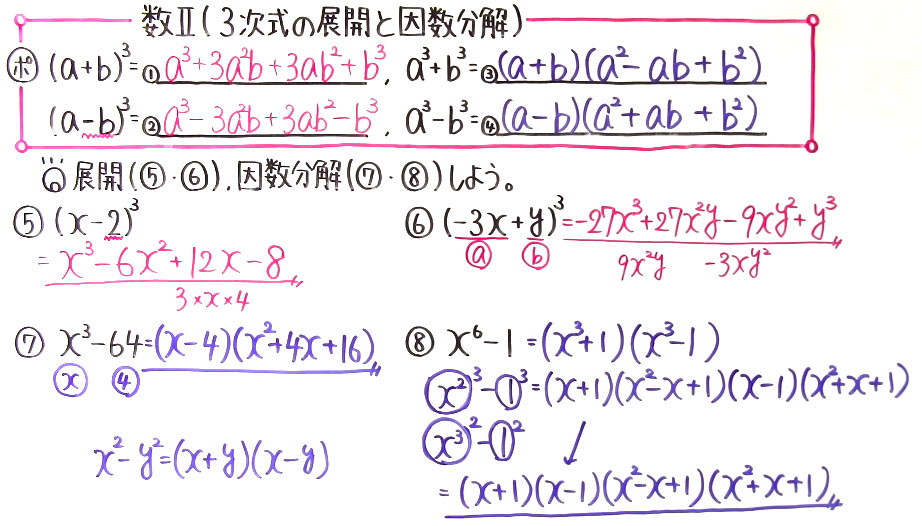 数Ⅱ(3次式の展開と因数分解)
ポ (a+b)³=①a³+3a²b+3ab²+b³, a³+b³=③(a+b)(a²-ab+b²)
(a-b)³=②a³-3a²b+3ab²-b³, a³-b³=④(a-b)(a²+ab+b²)
展開(⑤・⑥),因数分解(⑦・⑧)しよう。
⑤ (x-2)³
= x³-6x²+12x-8
3×x×4
⑥ (-3x+y)³=-27x³+27x²y-9xy²+y³
ⓐ ⓑ 9x²y -3xy²
⑦ x³-64=(x-4)(x²+4x+16)
ⓧ ④
x²-y²=(x+y)(x-y)
⑧ x⁶-1=(x³+1)(x³-1)
(x²)³-(1)³=(x+1)(x²-x+1)(x-1)(x²+x+1)
(x³)²-(1)²
=(x+1)(x-1)(x²-x+1)(x²+x+1)